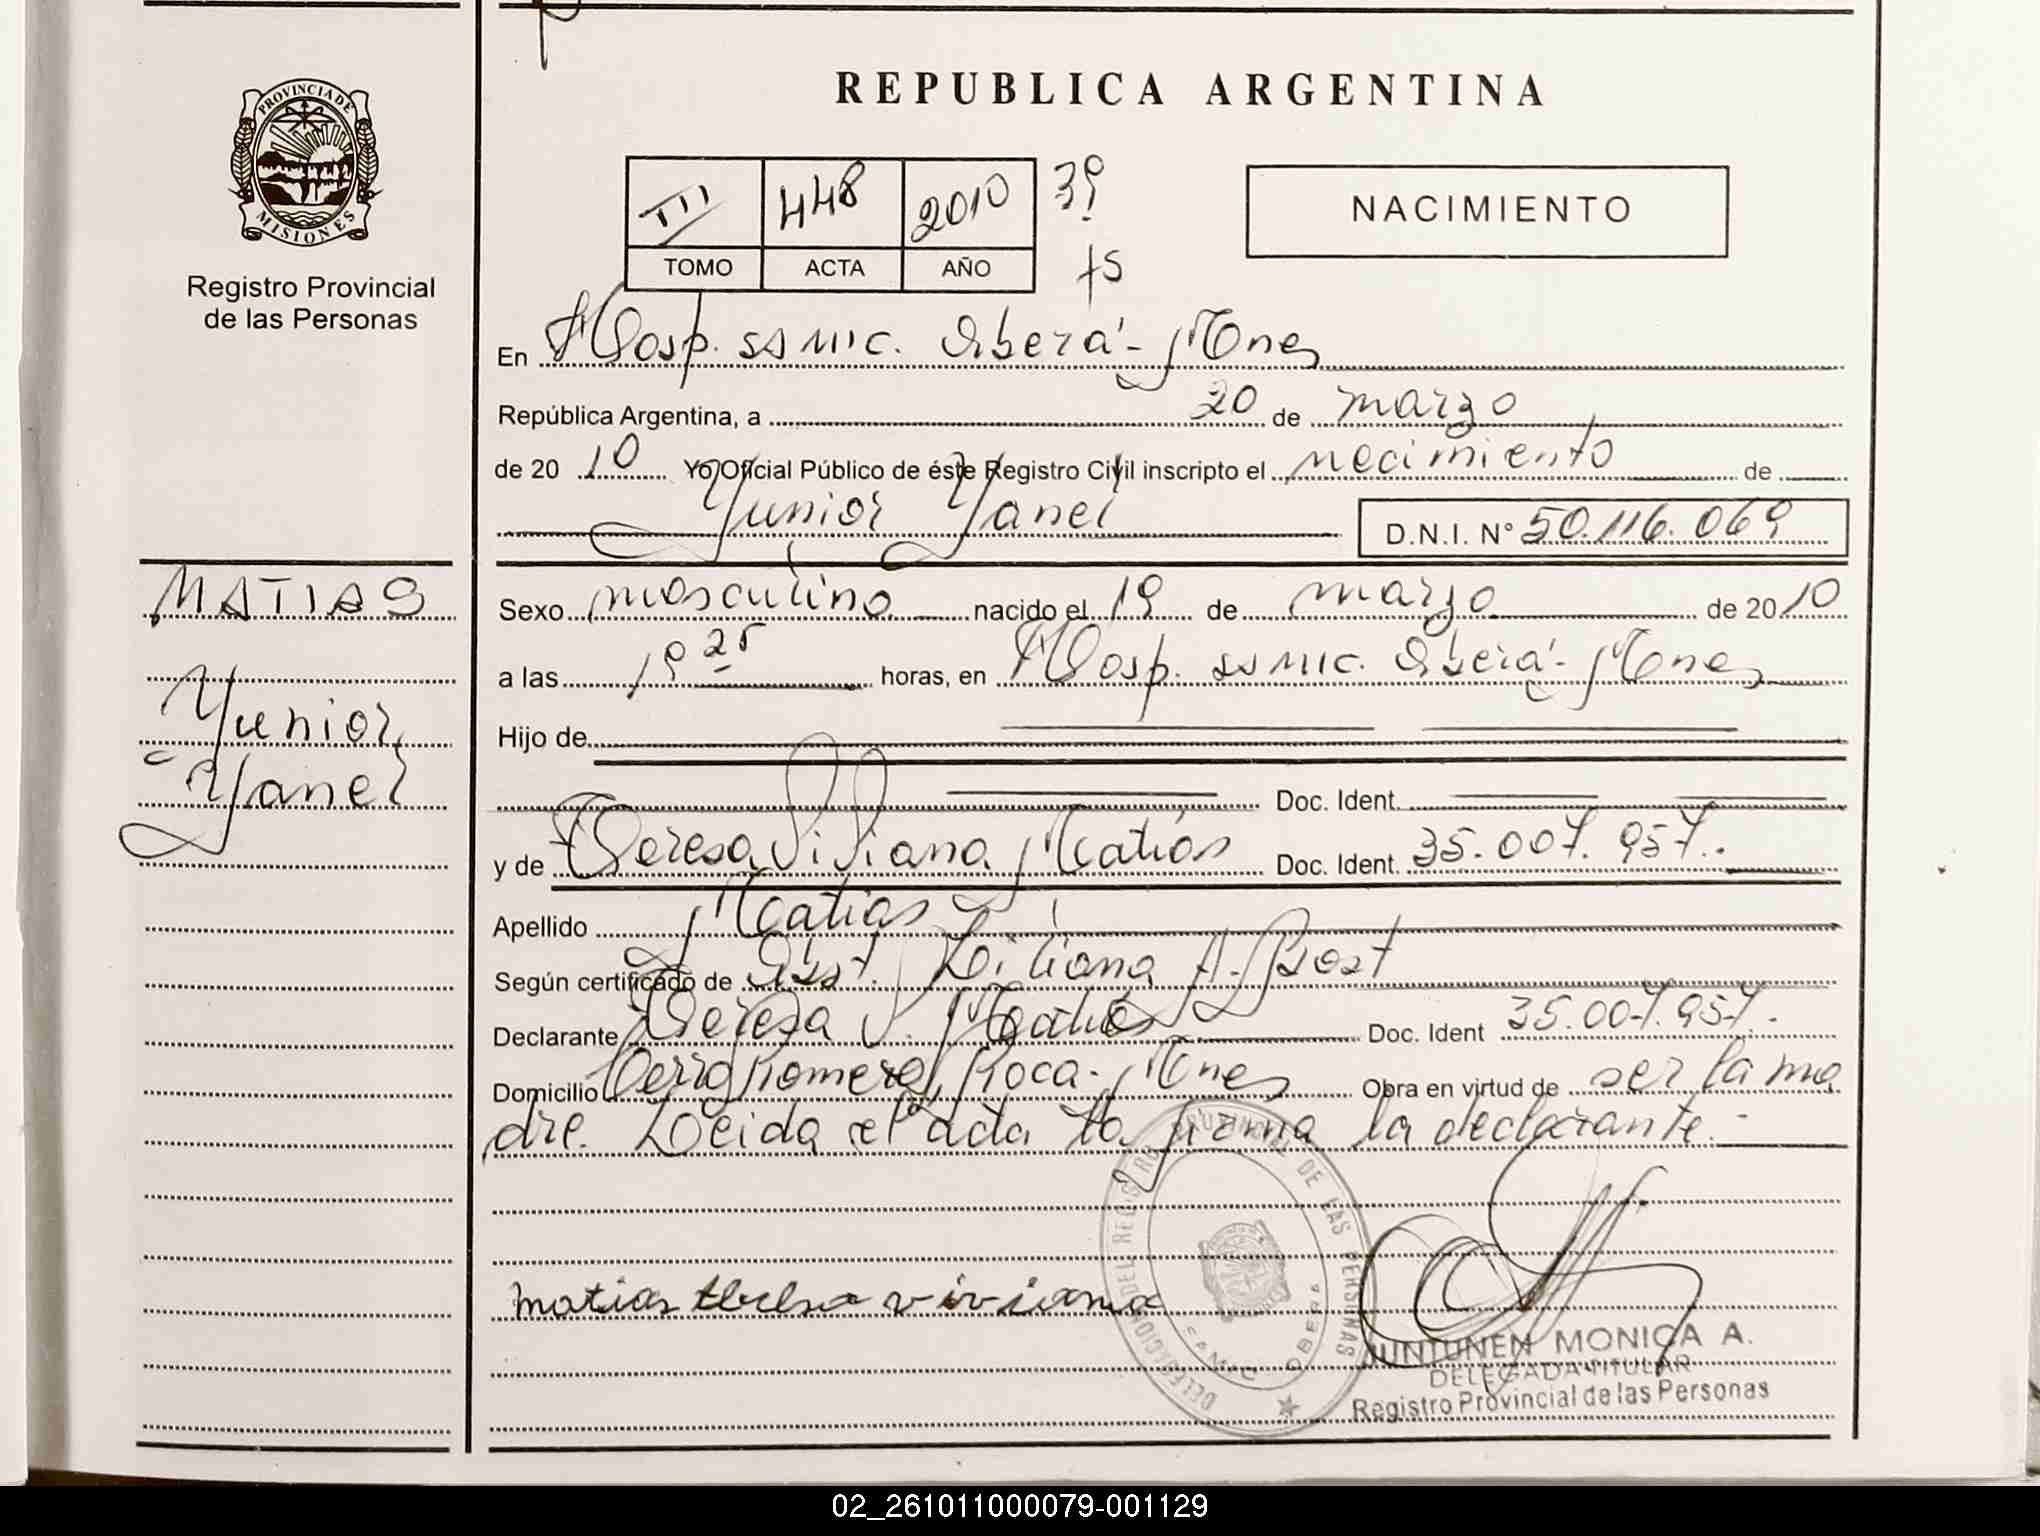 REPUBLICA ARGENTINA
PROVINCIA DE
MISIONES
Registro Provincial
de las Personas
III 448 2010 39
TOMO ACTA AÑO
NACIMIENTO
En Hosp. SAMIC. Oberá - Mnes
República Argentina, a 20 de marzo
de 20 10 Yo Oficial Público de éste Registro Civil inscripto el necimiento de
Yunior Yanel
D.N.I. N° 50.116.069
MATIAS
Yunior
Yanel
Sexo masculino nacido el 19 de marzo de 20 10
a las 19 25 horas, en Hosp. SAMIC. Oberá - Mnes
Hijo de
Doc. Ident.
y de Teresa Viviana Matías Doc. Ident. 35.007.957.
Apellido Matias
Según certificado de Obst. Liliana A. Bost
Declarante Teresa V. Matías Doc. Ident 35.007.957.
Domicilio Cerro Romero, Roca - Mnes Obra en virtud de ser la ma
dre. Leida el acta la firma la declarante. -
matias teresa viviana
DELEGACION DEL REGISTRO PROVINCIAL DE LAS PERSONAS
SAMIC OBERA
JUNTUNEN MONICA A.
DELEGADA TITULAR
Registro Provincial de las Personas
02_261011000079-001129